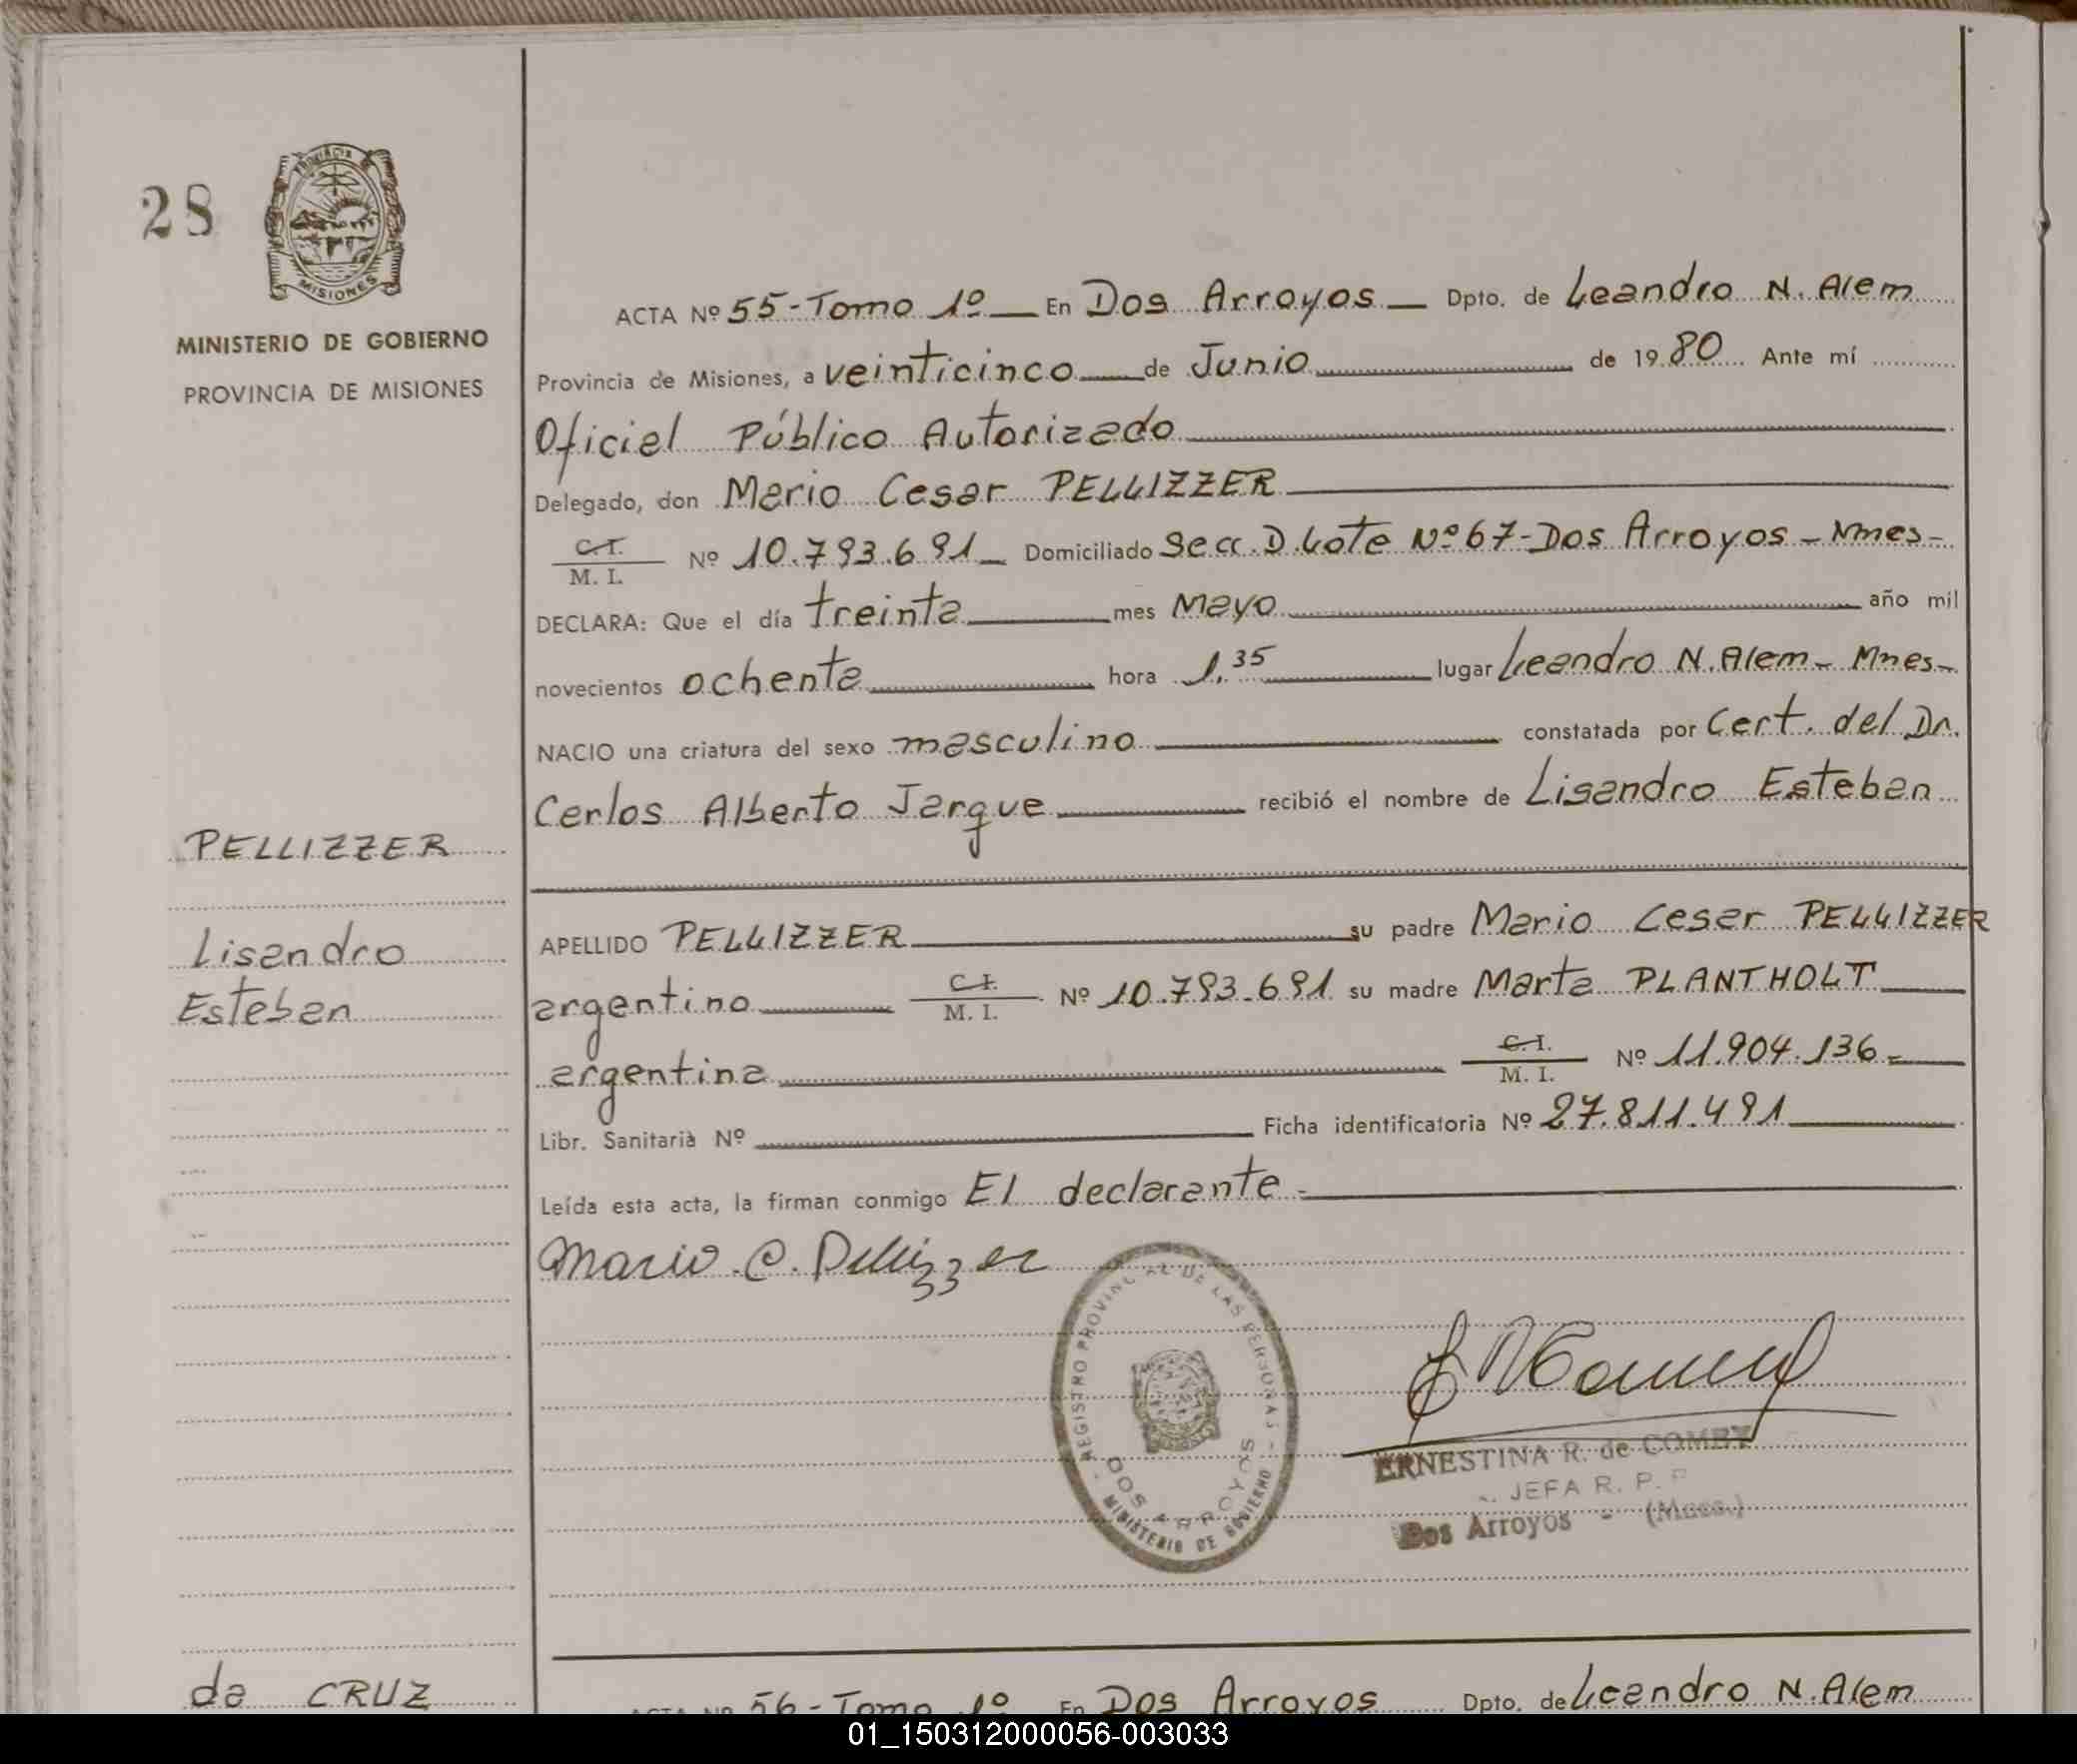 28
PROVINCIA
MISIONES
MINISTERIO DE GOBIERNO
PROVINCIA DE MISIONES
PELLIZZER
Lisandro
Esteban
ACTA Nº 55-Tomo 1º En Dos Arroyos Dpto. de Leandro N. Alem
Provincia de Misiones, a veinticinco de Junio de 1980 Ante mí
Oficial Público Autorizado
Delegado, don Mario Cesar PELLIZZER
C.I.
M. I. Nº 10.793.691 Domiciliado Secc. D. Lote Nº 67-Dos Arroyos - Mnes-
DECLARA: Que el día treinta mes Mayo año mil
novecientos ochenta hora 1.35 lugar Leandro N. Alem - Mnes-
NACIO una criatura del sexo masculino constatada por Cert. del Dr.
Carlos Alberto Jarque recibió el nombre de Lisandro Esteban
APELLIDO PELLIZZER su padre Mario Cesar PELLIZZER
argentino C.I. M. I. Nº 10.793.691 su madre Marta PLANTHOLT
argentina C.I. M. I. Nº 11.904.136-
Libr. Sanitaria Nº Ficha identificatoria Nº 27.811.491
Leída esta acta, la firman conmigo El declarante -
Mario C. Pellizzer
REGISTRO PROVINCIAL DE LAS PERSONAS -
DOS ARROYOS
MINISTERIO DE GOBIERNO
ERNESTINA R. de COMBY
JEFA R. P. P
Dos Arroyos - (Mnes.)
da CRUZ
ACTA Nº 56-Tomo 1º En Dos Arroyos Dpto. de Leandro N. Alem
01_150312000056-003033